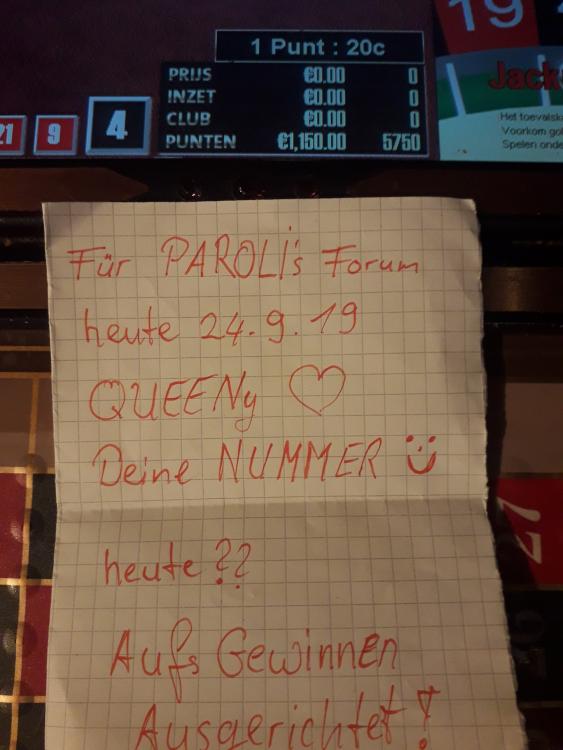 19
1 Punt : 20c
PRIJS €0.00 0
INZET €0.00 0
CLUB €0.00 0
PUNTEN €1,150.00 5750
21 9 4
Jack
Het toevalsk
Voorkom gok
Spelen onde
Für PAROLI's Forum
heute 24.9.19
QUEENy ♡
Deine NUMMER
heute??
Aufs Gewinnen
Ausgerichtet!
27
26